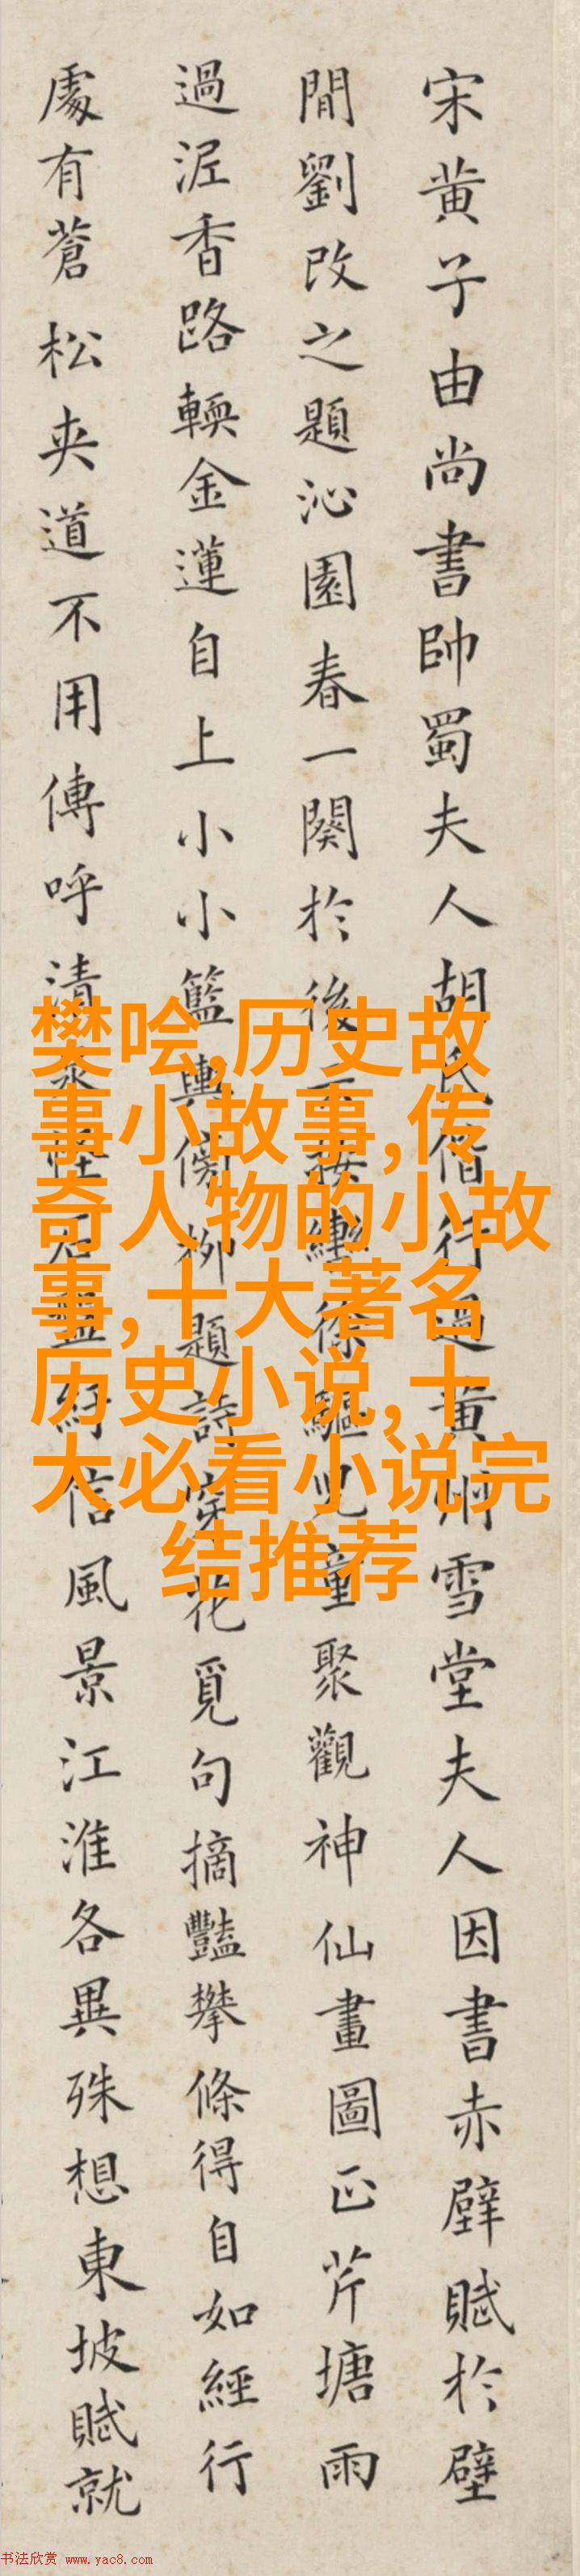 宋黄子由尚書帥蜀夫人胡氏偕行過黄州雪堂夫人因書赤壁賦於壁
間劉改之題沁園春一闋於後云按轡徐驅兒童聚觀神仙畫圖正芹塘雨
過泥香路輭金蓮自上小小籃輿傍柳題詩穿花覓句摘豔攀條得自如經行
處有蒼松夾道不用傳呼清泉怪石盤紆信風景江淮各異殊想東坡賦就
樊哙,历史故
事小故事,传
奇人物的小故
事,十大著名
历史小说,十
大必看小说完
结推荐
书法欣赏 www.yac8.com